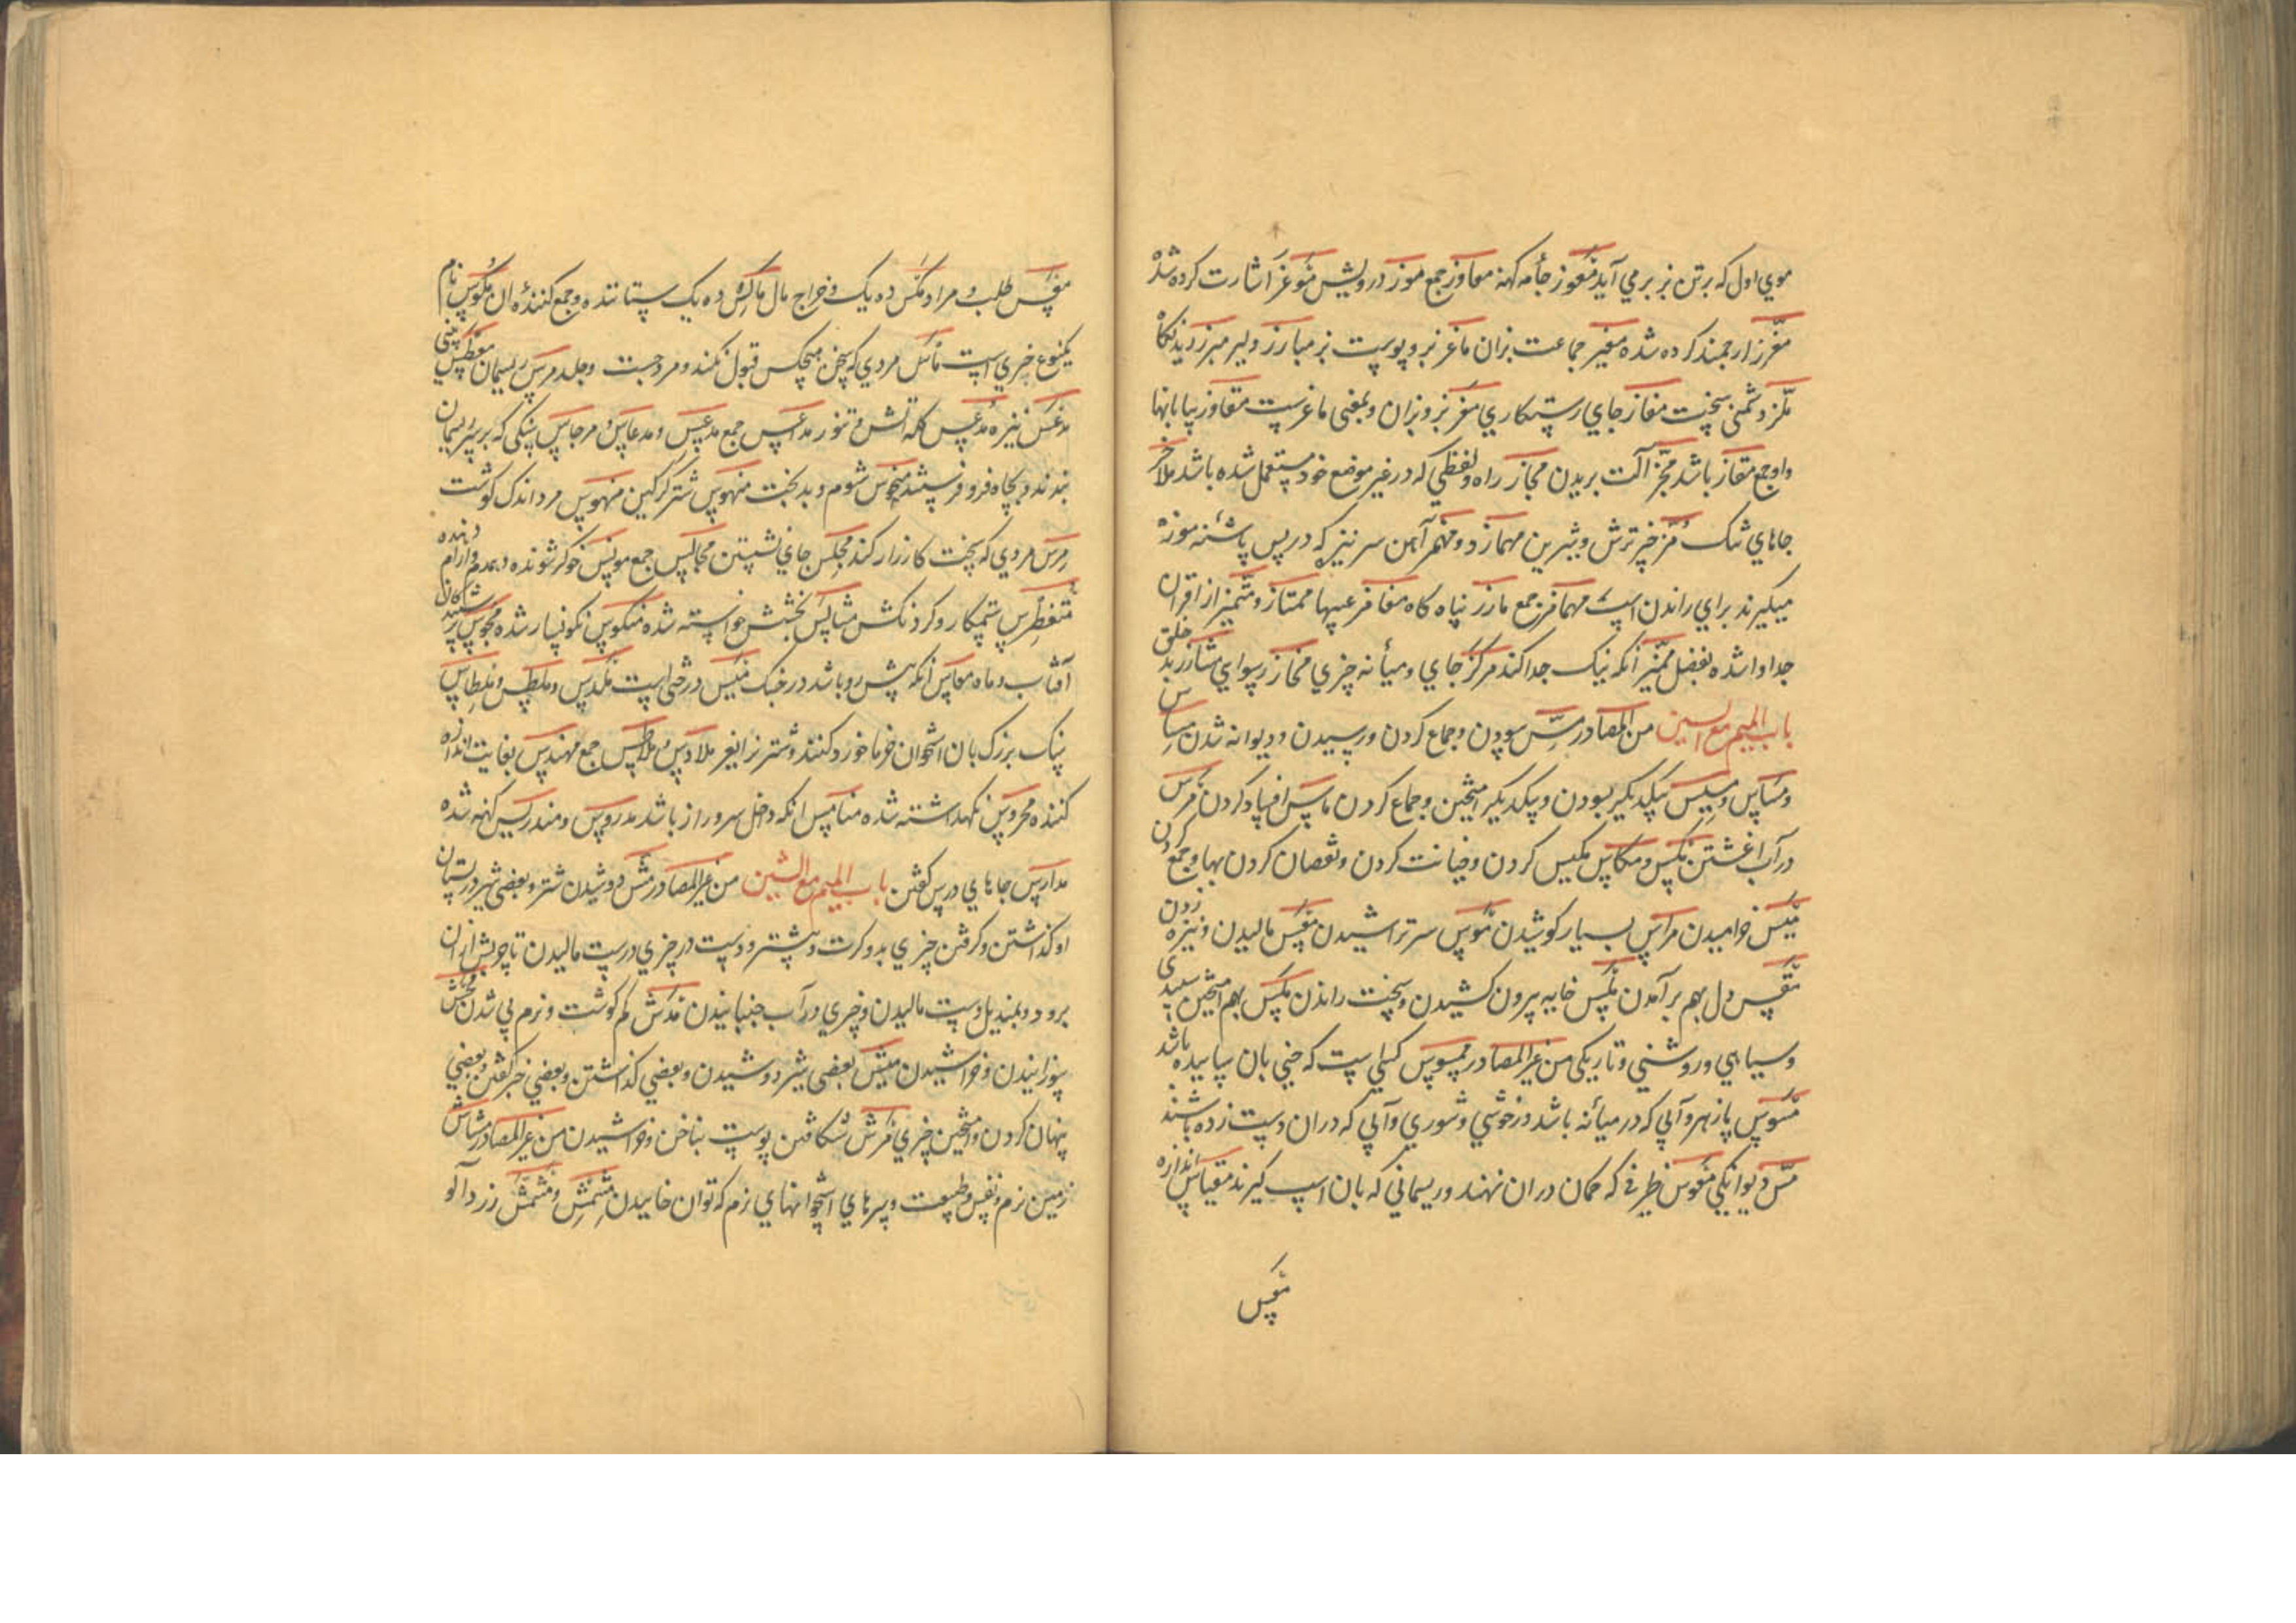 موي اول که برتن بز برمي آيد معوز جامه کهنه معاوز جمع موز درويش موغز اشارت کرده شده
مغرز ارجمند کرده شده معيز جماعت بزان ماعز بز و پوست بز مبارز دلير مبرز ديدنکاه
ملز دشمنی سخت مفاز جاي رستکاري معز بز و بزان و بمعنی ماعزست مفاوز بيابانها
واو جمع مفاز باشد مجز آلت بريدن مجاز راه و لفظي که در غير موضع خود مستعمل شده باشد ملاحز
جاهاي تنک مز چيز ترش و شيرين مهماز و مهمز آهن سر تيز که در پس پاشنه موزه
ميکيرند براي راندن اسب مهامز جمع مارز پناه کاه مغامز عيبها ممتاز و متميز از اقران
جدا واشده بفضل مميز آنکه نيک جدا کند مرکز جاي و ميانه چيزي مخاز رسوايي مشارز بدخلق
باب الميم مع السين من المصادر مس سودن و جماع کردن و رسيدن و ديوانه شدن مساس
و مماس و مسيس بيکديکر بسودن و بيکديکر آميختن و جماع کردن ماس افساد کردن مرس
در آب اغشتن مکس و مکاس مکيس کردن و خيانت کردن و نقصان کردن بها و جمع کردن
ميس خراميدن مراس بسيار کوشيدن موس سر تراشيدن معس ماليدن و نيزه زدن
مقس دل بهم بر آمدن ملس خايه بيرون کشيدن و سخت راندن ملس بهم آميختن سپيدي
و سياهي و روشني و تاريکي من غير المصادر ممسوس کسي است که جني بان بساييده باشد
مسوس پازهر و آبي که در ميانه باشد در خوشي و شوري و آبي که دران دست زده باشند
مس ديوانکي مقوس ظرفي که کمان دران نهند و ريسماني که بان اسپ کيرند مقياس اندازه
مقس
مقس طلب و مراد مکس ده يک و خراج مال ماکس ده يک ستاننده و جمع کننده ان مکوس نام
يکنوع چيزي است ماس مردي که سخن هيچکس قبول نکند و مرد چست و جلد مرس ريسمان معطس بينی
مدعس نيزه مدعس کله اتش و تنور مداعس جمع مدعس و مدعاس و مرجاس سنکی که بر سر ريسمان
بندند و بچاه فرو فرستند منحوس شوم و بدبخت منهوس شتر کرکين منهوس مرد اندک کوشت
مرس مردي که سخت کارزار کند مجلس جاي نشستن مجالس جمع مونس خوکر شونده و همدم و ارام دهنده
متغطرس ستمکار و کردنکش بخشش خواسته شده منکوس نکونسار شده مجوس پرستيدکان
آفتاب و ماه معاس انکه پيش رو باشد در جنک ميس درختی است ملدس و ملطس و ملطاس
سنک بزرک بان استخوان خرما خورد کنند و شتر نر را نيز ملادس و ملاطس جمع مهندس بغايت اندازه
کننده محروس نکهداشته شده منامس انکه داخل سر و راز باشد مدروس و مندرس کهنه شده
مدارس جاهاي درس کفتن باب الميم مع الشين من غير المصادر مشش دوشيدن شتر و بعضی شير در پستان
او کذاشتن و کرفتن چيزي بدو کرت و بيشتر و دست در چيزي درست ماليدن تا چربش ازان
برود و بمنديل دست ماليدن و چيزي در آب جنبانيدن مدش کم کوشت و نرم پي شدن محش
سوزانيدن و خراشيدن ميش بعضی شير دوشيدن و بعضي کذاشتن و بعضي خبر کفتن و بعضي
پنهان کردن و آميختن چيزي مرش شکافتن پوست بناخن و خراشيدن من غير المصادر مشاش
زمين نرم و نفس و طبيعت و سرهاي استخوانهاي نرم که توان خاييدن مشمش و مشمش زرد آلو